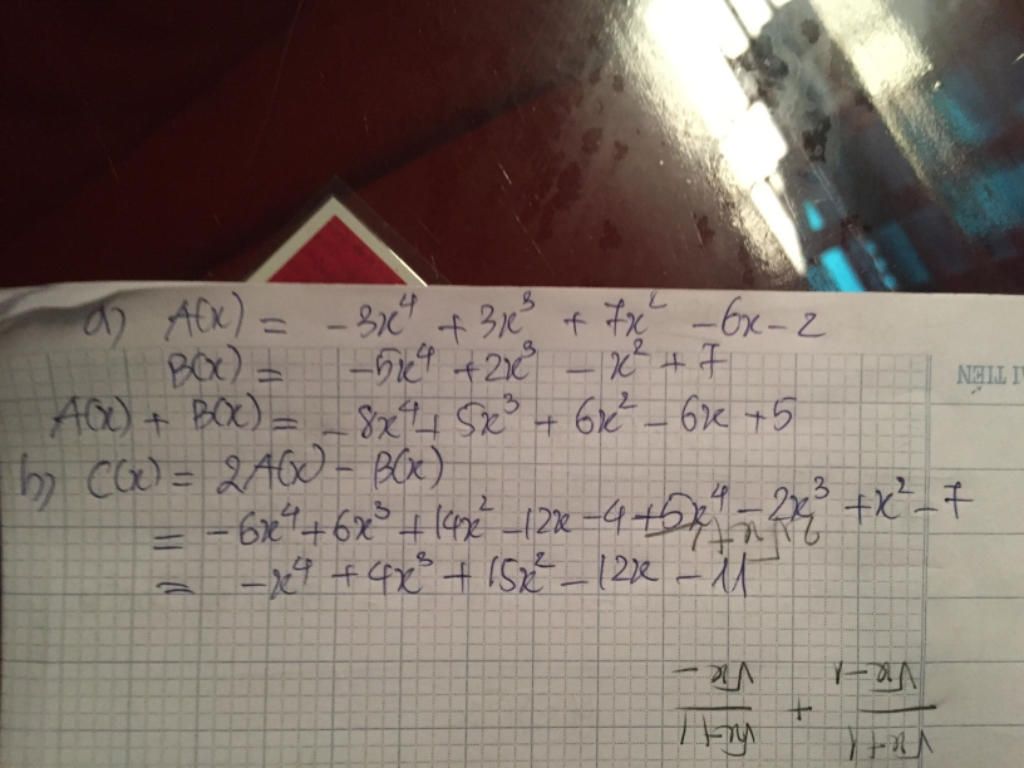 a) A(x) = -3x⁴ + 3x³ + 7x² - 6x - 2
B(x) = -5x⁴ + 2x³ - x² + 7
A(x) + B(x) = -8x⁴ + 5x³ + 6x² - 6x + 5
b) C(x) = 2A(x) - B(x)
= -6x⁴ + 6x³ + 14x² - 12x - 4 + 5x⁴ - 2x³ + x² - 7
= -x⁴ + 4x³ + 15x² - 12x - 11
TIÊN